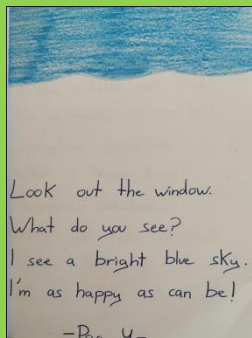 Look out the window.
What do you see?
I see a bright blue sky.
I'm as happy as can be!